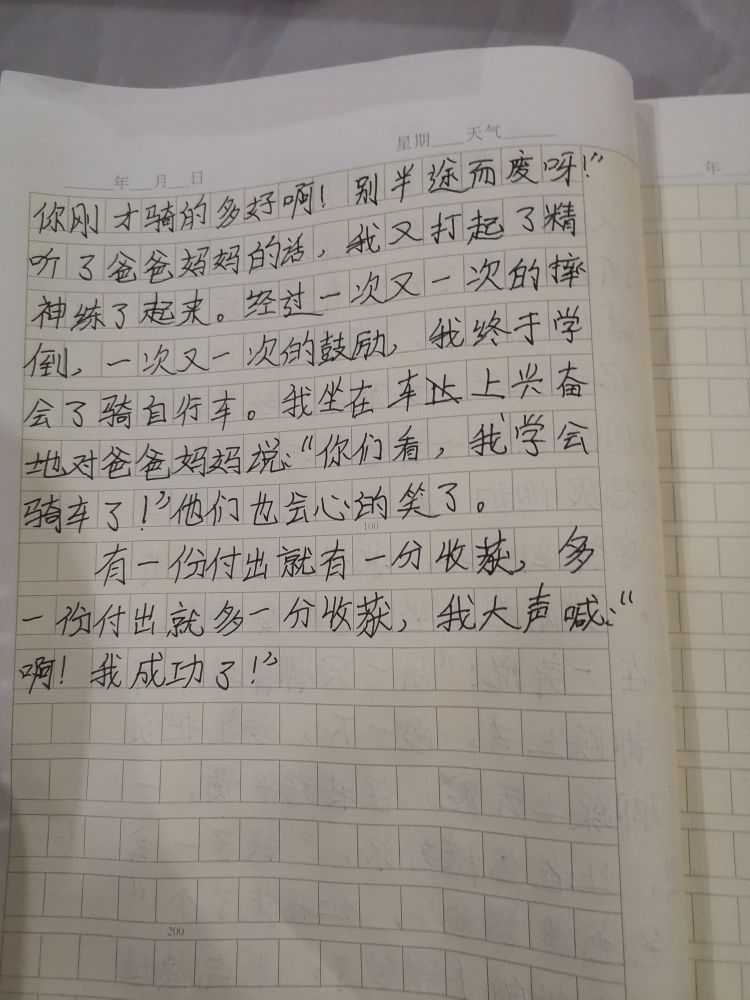 星期 天气
年 月 日
年
你刚才骑的多好啊！别半途而废呀！”
听了爸爸妈妈的话，我又打起了精
神练了起来。经过一次又一次的摔
倒，一次又一次的鼓励，我终于学
会了骑自行车。我坐在车上兴奋
地对爸爸妈妈说：“你们看，我学会
骑车了！”他们也会心的笑了。
100
有一份付出就有一分收获，多
一份付出就多一分收获，我大声喊：“
啊！我成功了！”
200